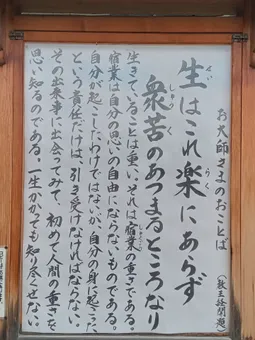 お大師さまのおことば
(教王経開題)
生はこれ楽にあらず
衆苦のあつまるところなり
生きていることは重い、それは宿業の重さである。
宿業は自分の思いの自由にならないものである。
自分が起こしたわけではないが、自分の身に起こった
という責任だけは、引き受けなければならない。
その出来事に出会ってみて、初めて人間の重さを
思い知るのである。一生かかっても知り尽くせない。